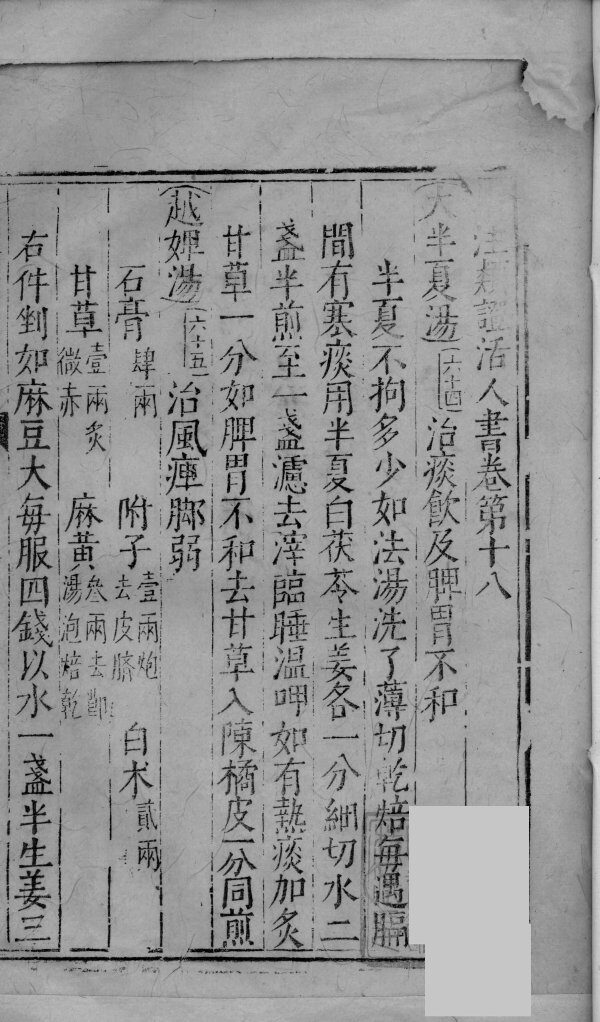 注類證活人書卷第十八
大半夏湯六十四治痰飲及脾胃不和
半夏不拘多少如法湯洗了薄切乾焙每遇膈
間有寒痰用半夏白茯苓生姜各一分細切水二
盞半煎至一盞濾去滓臨睡溫呷如有熱痰加炙
甘草一分如脾胃不和去甘草入陳橘皮一分同煎
越婢湯六十五治風痺脚弱
石膏肆兩 附子壹兩炮去皮臍 白朮貳兩
甘草壹兩炙微赤 麻黃叁兩去節湯泡焙乾
右件剉如麻豆大每服四錢以水一盞半生姜三